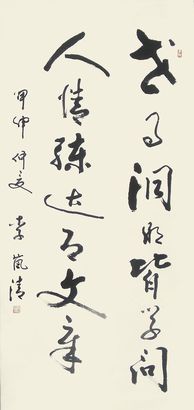 世事洞明皆学问
人情练达即文章
甲申仲夏 李岚清